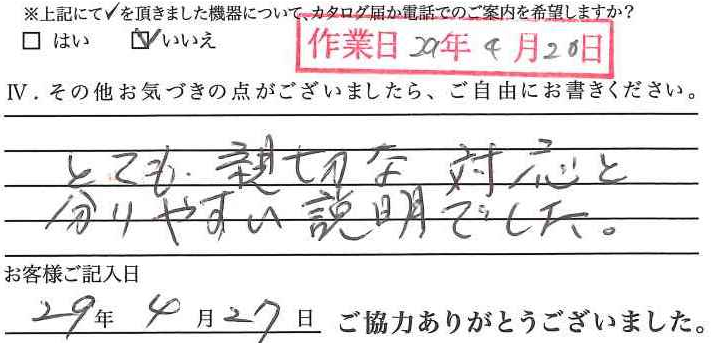 ※上記にて✓を頂きました機器について、カタログ届か電話でのご案内を希望しますか？
□ はい ☑ いいえ
作業日 29年 4月20日
Ⅳ．その他お気づきの点がございましたら、ご自由にお書きください。
とても親切な対応と
分りやすい説明でした。
お客様ご記入日
29年 4月27日 ご協力ありがとうございました。